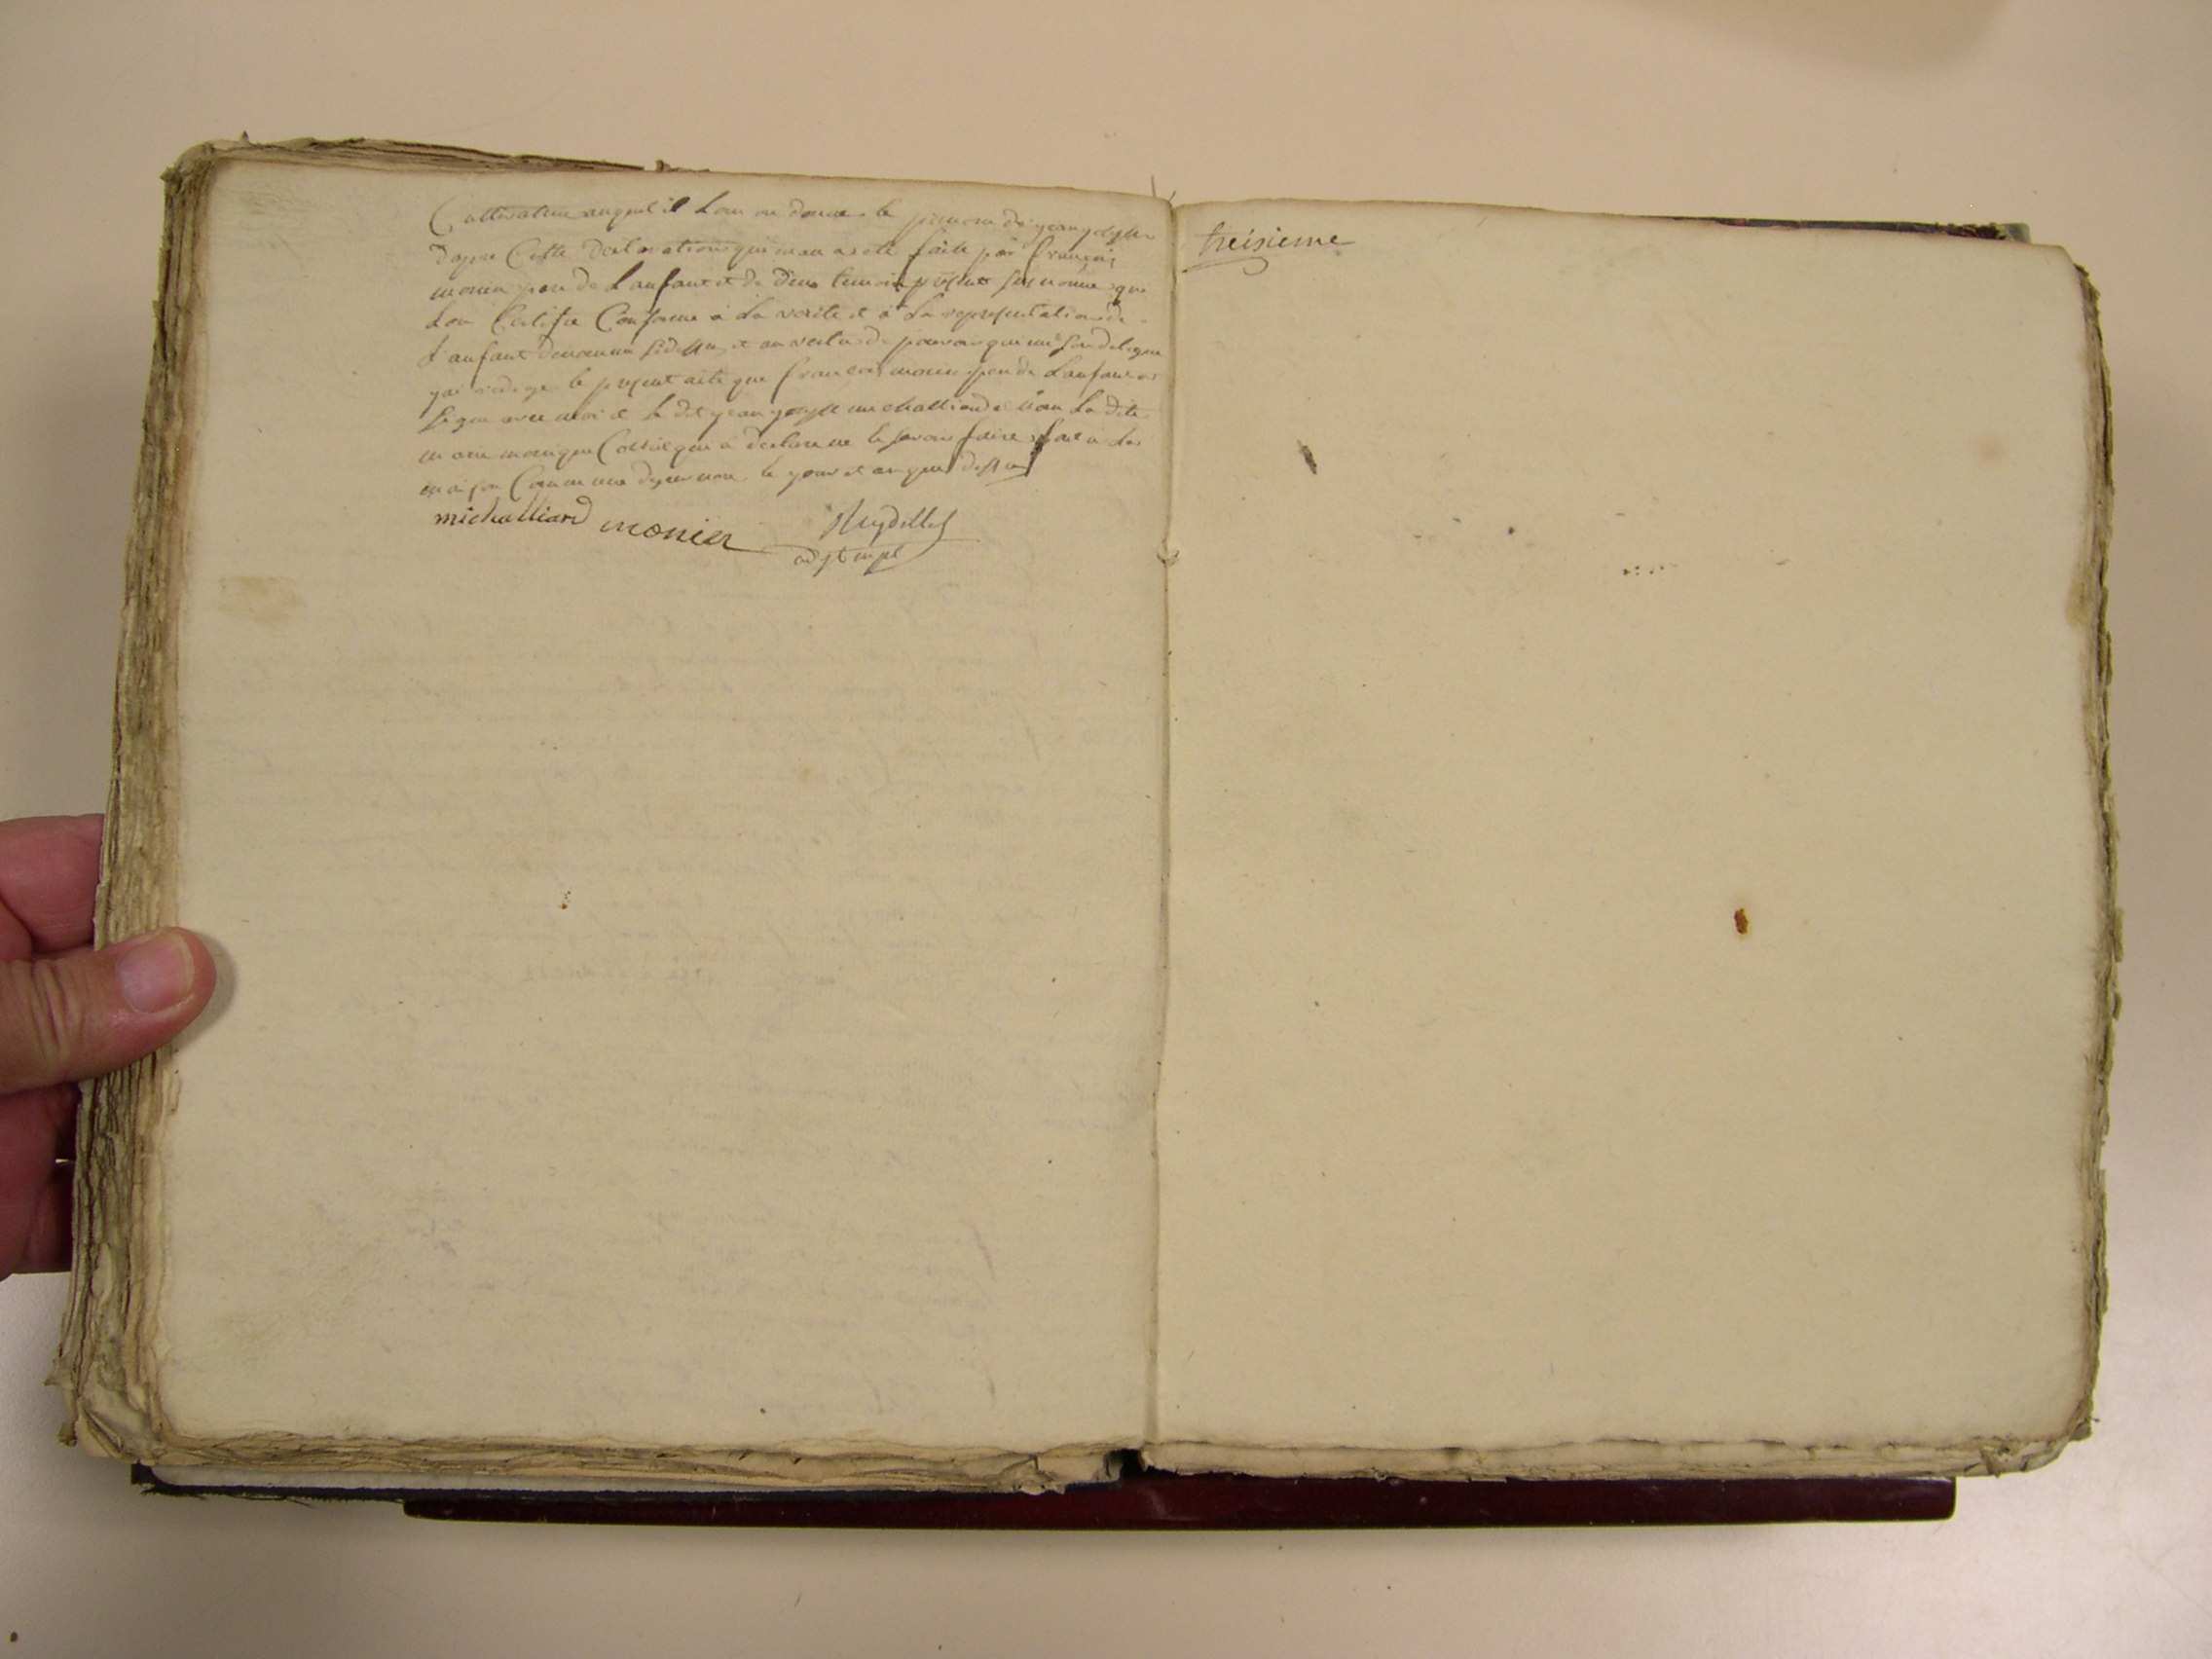 Cultivateur auquel il lon on donne le prenom de jean joseph
dapre Cette declaration qui man a ete faite par francois
monier pere de lanfant et de deux temoin susnomme que
lon Certifie Conforme a la verite et a la representation de
lanfant denomme sidessus et an vertu de pouvoir qui me son delegue
jai redige le present acte que francois monier pere de lanfant
signe avec moi et le dit jean joseph michalliard non la dite
marie que a declare ne le savoir faire fait a la
maison Commune de le jour et an que dessus
michalliard monier
adjt mpl
treisieme